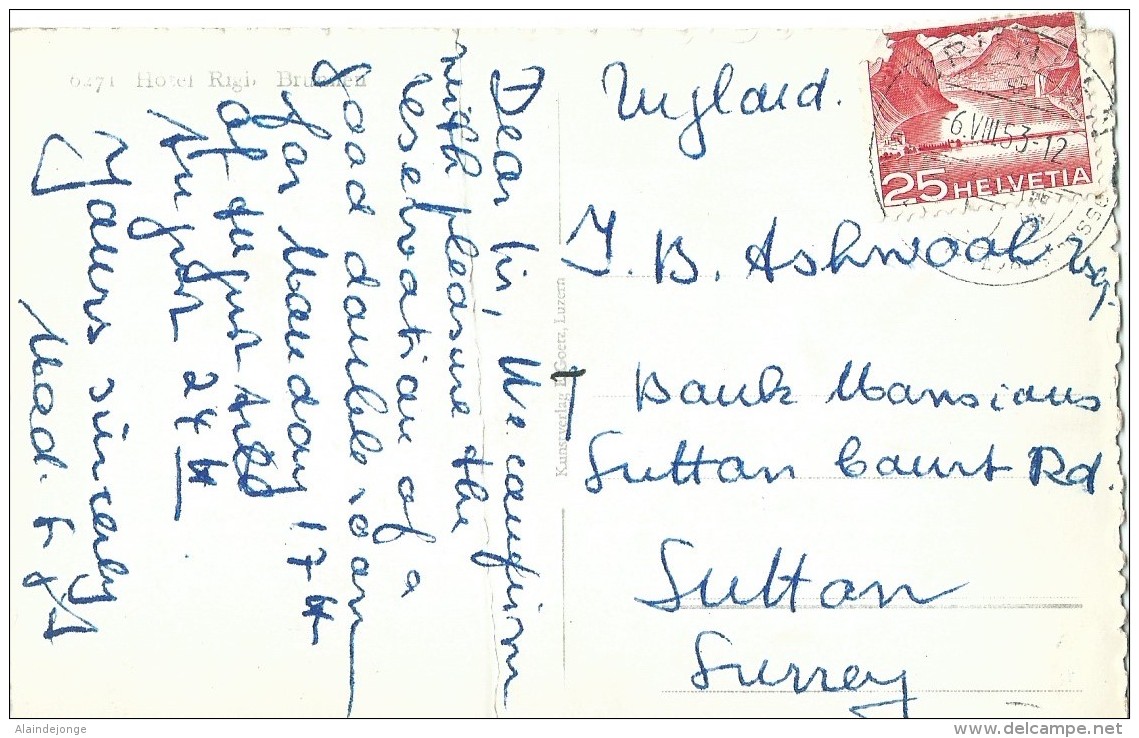 6271 Hotel Rigi, Brunnen
Dear Sir, We confirm
with pleasure the
reservation of a
good double room
for Monday 17th
of August till
August 24th
Yours sincerely
Kunstverlag E. Goetz, Luzern
England.
25 HELVETIA
6.VIII.53-12
J. B. Ashwood Esq.
7 Bank Mansions
Sutton Court Rd.
Sutton
Surrey
Alaindejonge
www.delcampe.net